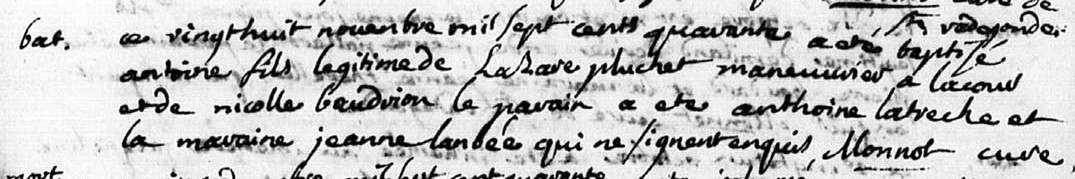 de
bat. ce vingthuit novembre mil sept cents quarante a eté baptisé
Ste radegonde
antoine fils legitime de Lazare pluchet maneuvrier a lacour
et de nicolle baudrion le parain a ete anthoine latreche et
la maraine jeanne landée qui ne signent enquis, Monnot cure
mort.